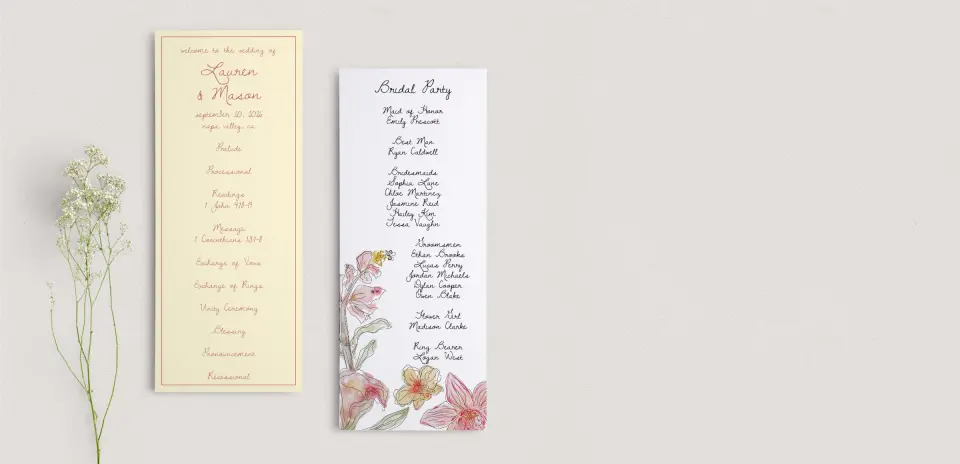 welcome to the wedding of
Lauren
& Mason
september 20, 2026
napa valley, ca
Prelude
Processional
Readings
1 John 4:18-19
Message
1 Corinthians 13:1-8
Exchange of Vows
Exchange of Rings
Unity Ceremony
Blessing
Pronouncement
Recessional
Bridal Party
Maid of Honor
Emily Prescott
Best Man
Ryan Caldwell
Bridesmaids
Sophia Lane
Chloe Martinez
Jasmine Reid
Hailey Kim
Tessa Vaughn
Groomsmen
Ethan Brooks
Lucas Perry
Jordan Michaels
Dylan Cooper
Owen Blake
Flower Girl
Madison Clarke
Ring Bearer
Logan West